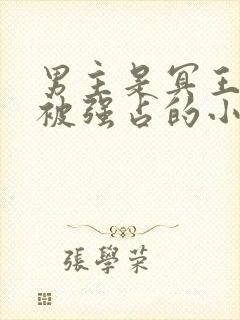 男主是冥王
被强占的小
張學荣